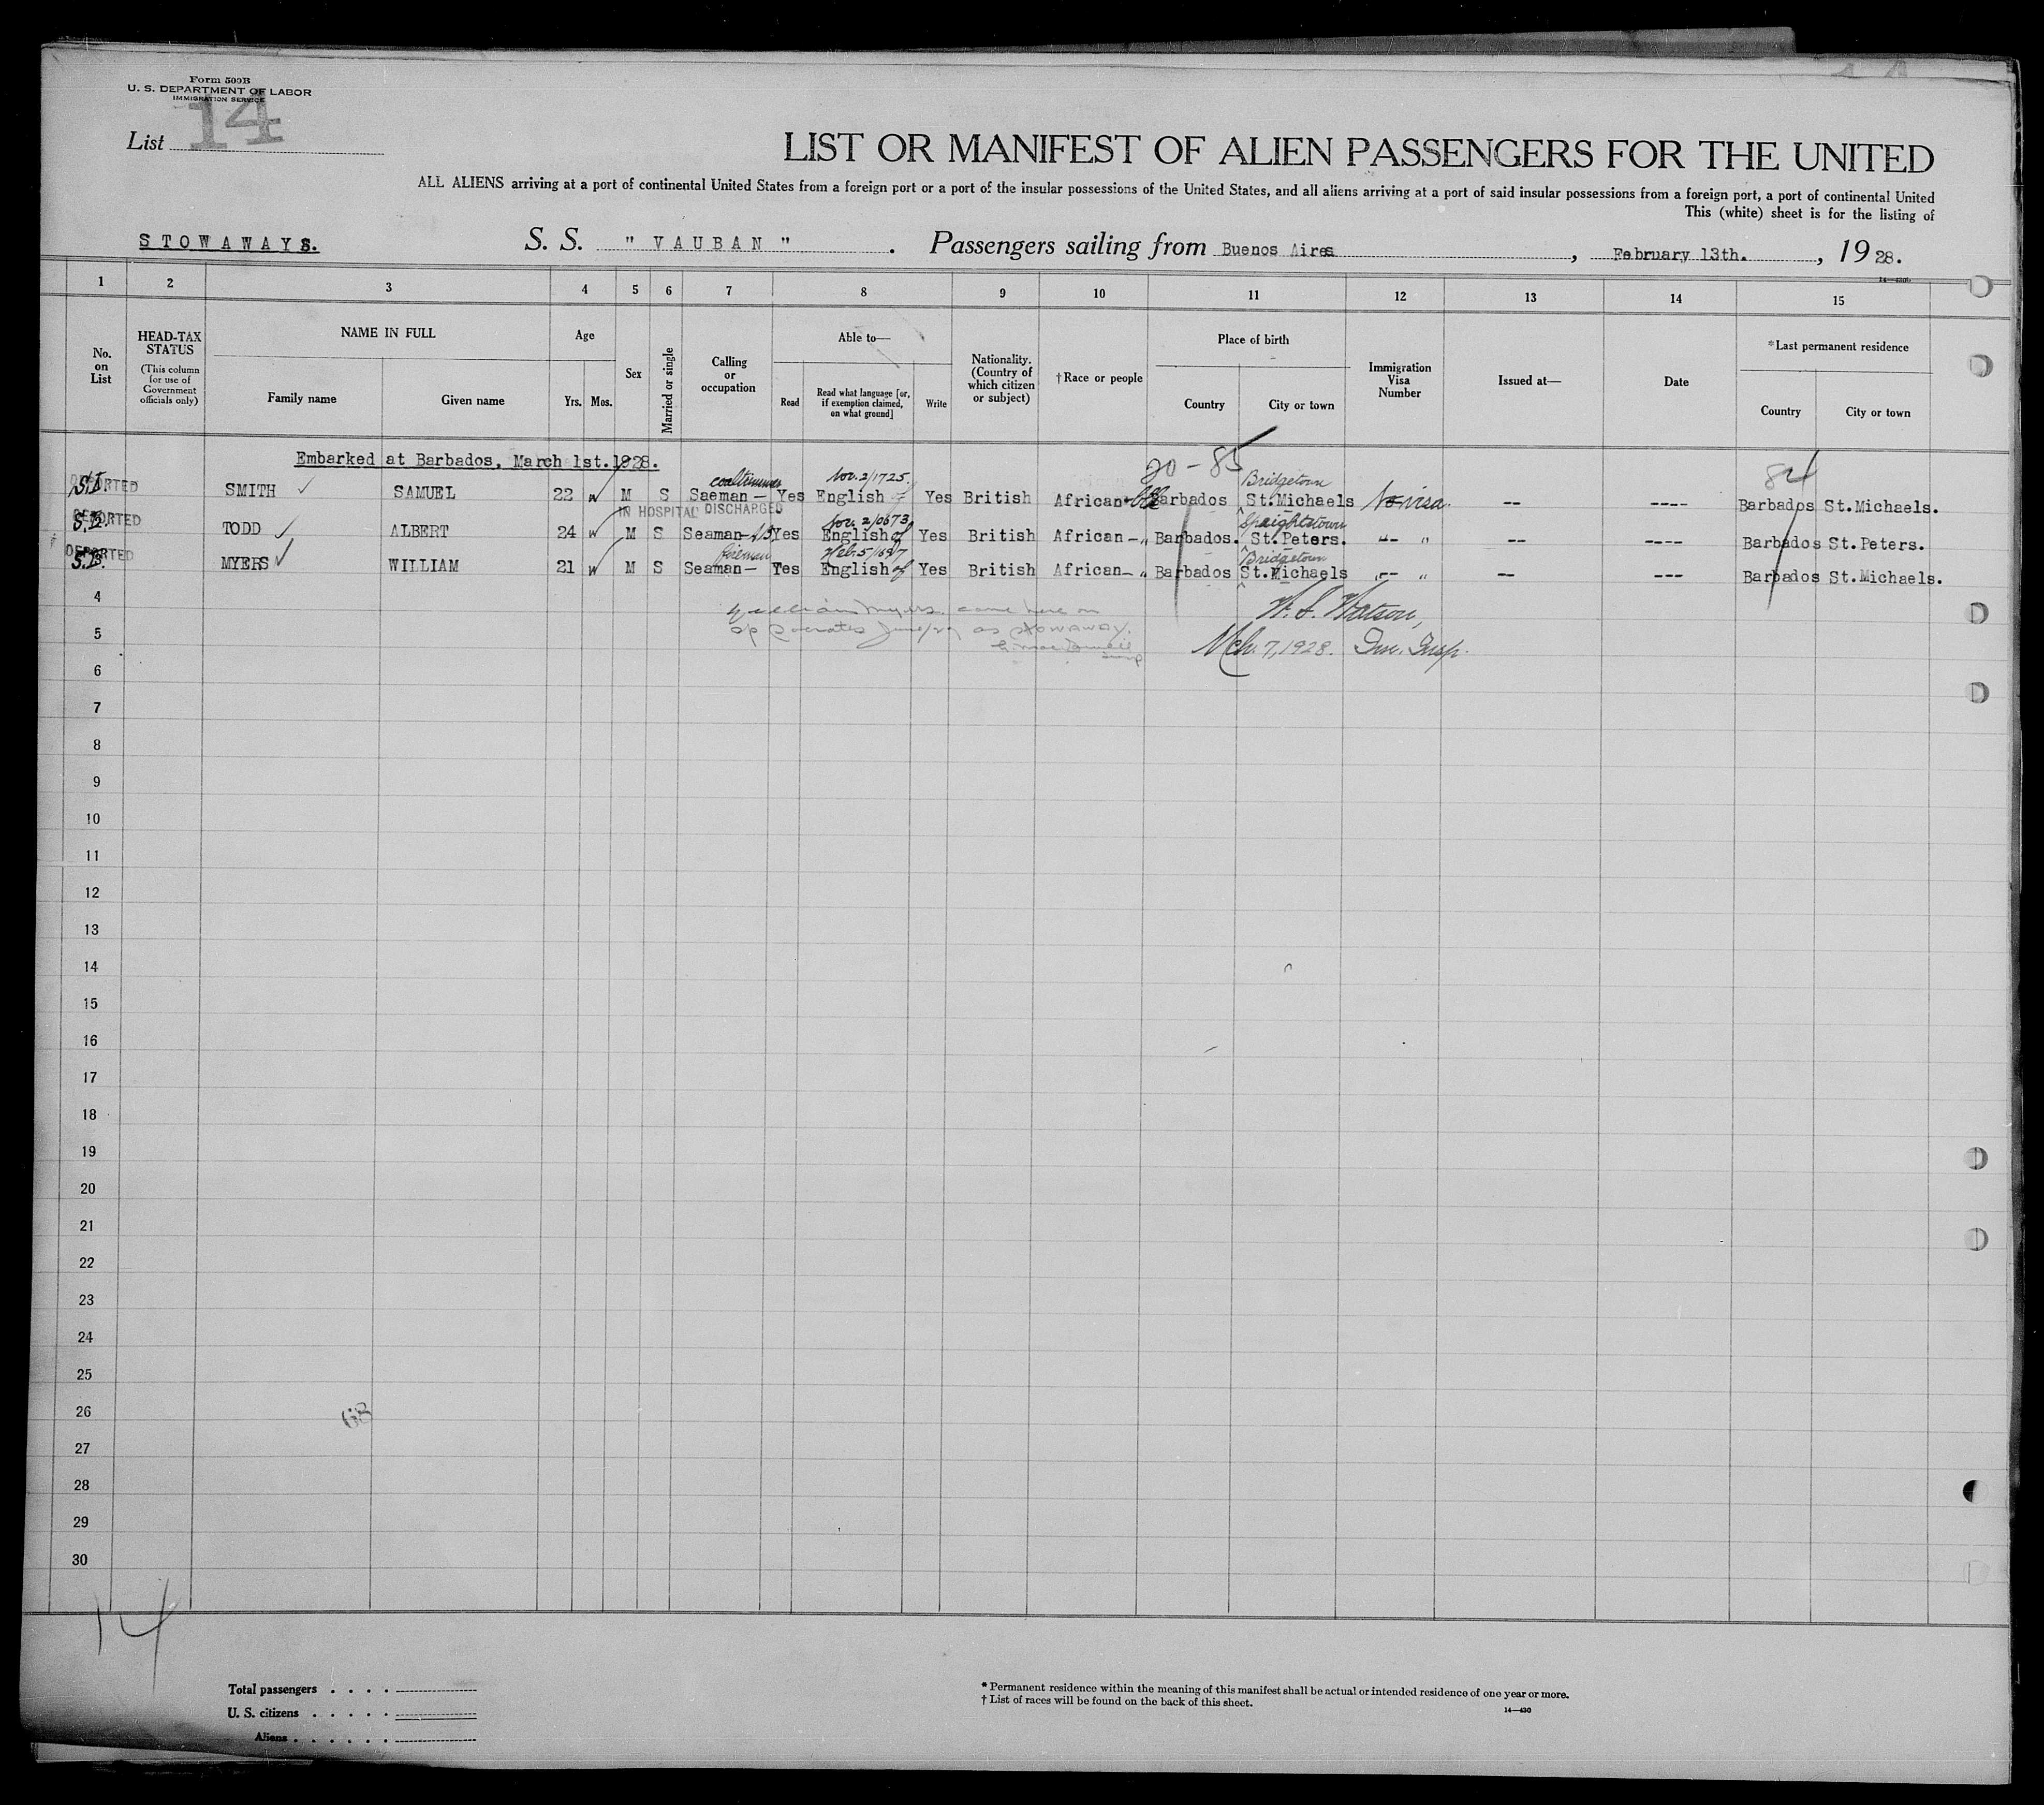 Form 500B
U. S. DEPARTMENT OF LABOR
IMMIGRATION SERVICE
List 14
LIST OR MANIFEST OF ALIEN PASSENGERS FOR THE UNITED
ALL ALIENS arriving at a port of continental United States from a foreign port or a port of the insular possessions of the United States, and all aliens arriving at a port of said insular possessions from a foreign port, a port of continental United
This (white) sheet is for the listing of
STOWAWAYS. S. S. " VAUBAN ". Passengers sailing from Buenos Aires, February 13th., 1928.
1 2 3 4 5 6 7 8 9 10 11 12 13 14 15
No. on List
HEAD-TAX STATUS (This column for use of Government officials only)
NAME IN FULL
Family name Given name
Age
Yrs. Mos.
Sex
Married or single
Calling or occupation
Able to—
Read
Read what language [or, if exemption claimed, on what ground]
Write
Nationality. (Country of which citizen or subject)
†Race or people
Place of birth
Country City or town
Immigration Visa Number
Issued at—
Date
*Last permanent residence
Country City or town
Embarked at Barbados, March 1st.1928.
20-85
84
Bridgetown
DEPORTED SMITH SAMUEL 22 M S Saeman— Yes English Yes British African Barbados St.Michaels No visa -- ---- Barbados St.Michaels.
IN HOSPITAL DISCHARGED
Speightstown
DEPORTED TODD ALBERT 24 M S Seaman Yes English Yes British African — " Barbados. St.Peters. -- " -- ---- Barbados St.Peters.
fireman Bridgetown
DEPORTED MYERS WILLIAM 21 M S Seaman— Yes English Yes British African— " Barbados St.Michaels -- " -- --- Barbados St.Michaels.
4
William Myers came here on
as stowaway.
W. S. Watson,
5
Mch. 7, 1928. Insp.
6
7
8
9
10
11
12
13
14
15
16
17
18
19
20
21
22
23
24
25
26
68
27
28
29
30
14
Total passengers . . . .
U. S. citizens . . . . .
Aliens . . . . . .
* Permanent residence within the meaning of this manifest shall be actual or intended residence of one year or more.
† List of races will be found on the back of this sheet.
14—430